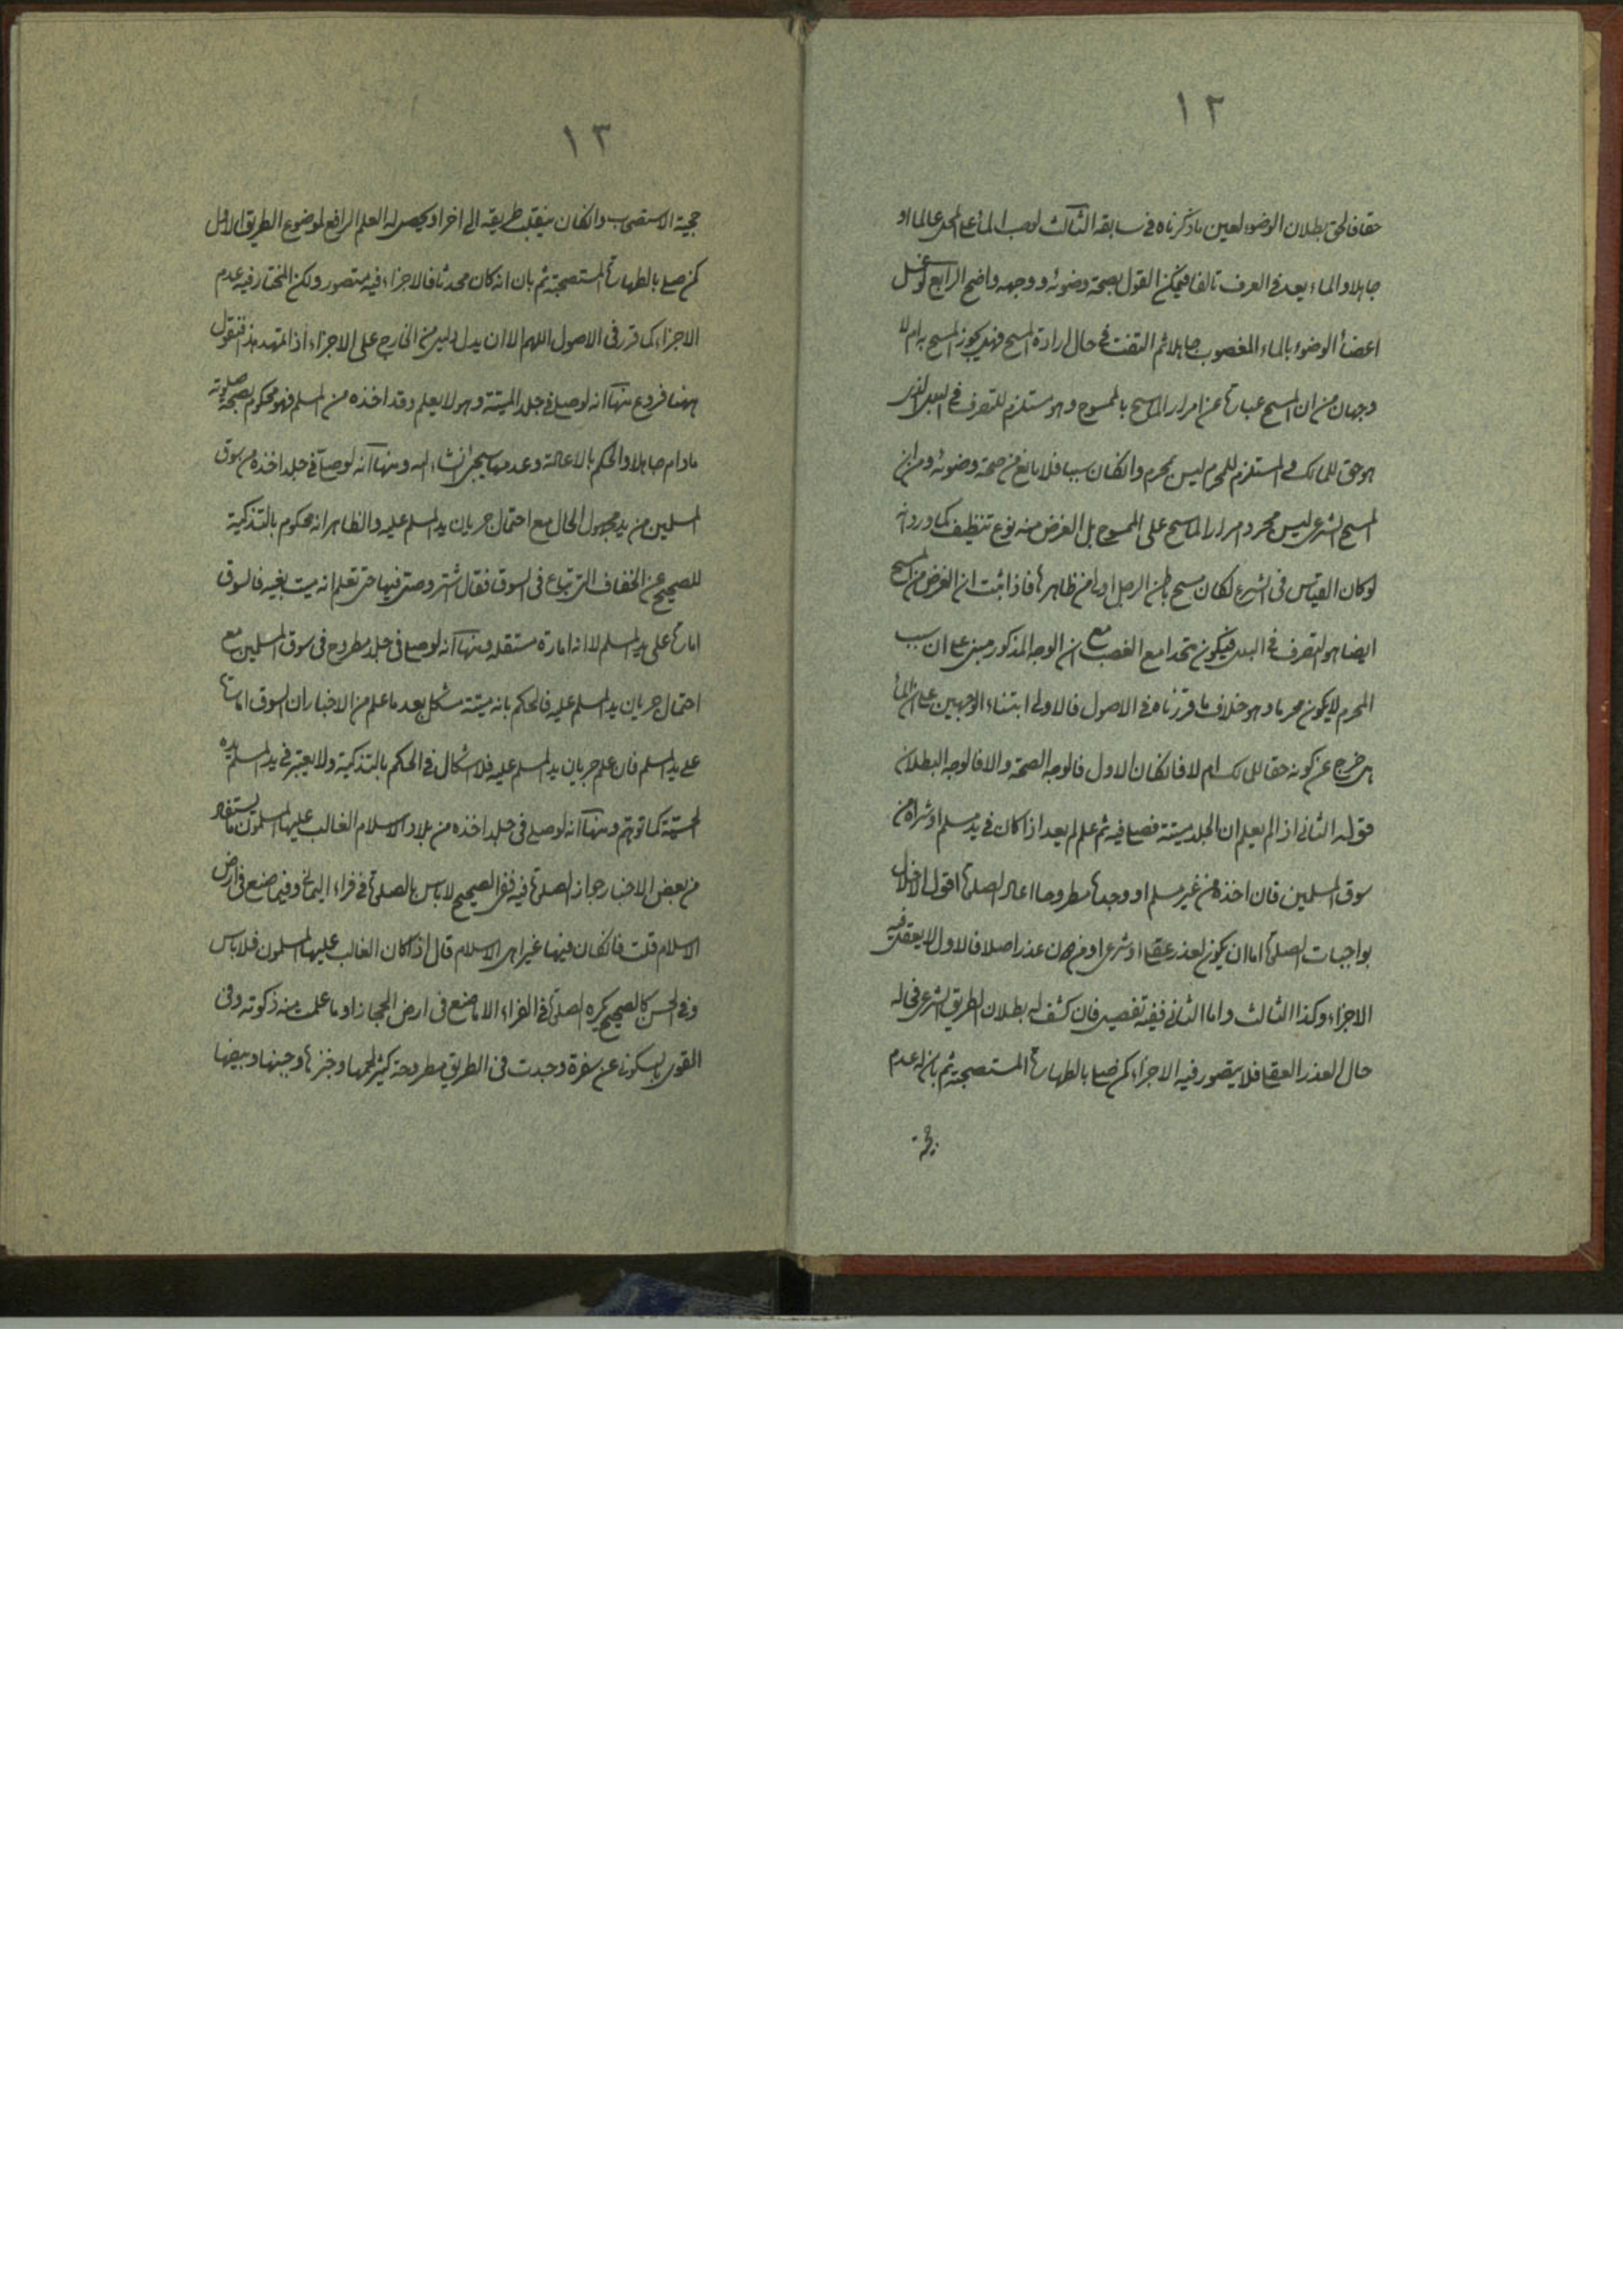 ١٢
حقا فالحق بطلان الوضوء لعين ما ذكرناه في سابقه الثالث لوصب الماء على المحل عالما او
جاهلا والماء يعد في العرف تالفا فيمكن القول بصحة وضوئه ووجهه واضح الرابع لو غسل
اعضاء الوضوء بالماء المغصوب جاهلا ثم التفت في حال ارادة المسح فهل يجوز المسح به ام لا
وجهان من ان المسح عبارة عن امرار الماسح بالممسوح وهو مستلزم للتصرف في البلل الذى
هو حق للمالك والمستلزم للمحرم ليس بمحرم وان كان سببا فلا مانع من صحة وضوئه ومن ان
المسح الشرعى ليس مجرد امرار الماسح على الممسوح بل الغرض منه نوع تنظيف كما ورد انه
لو كان القياس في الشرع لكان مسح باطن الرجل اولى من ظاهرها فاذا ثبت ان الغرض من المسح
ايضا هو التصرف في البلل فيكون متحدا مع الغصب مع ان الوجه المذكور مبنى على ان سبب
المحرم لا يكون محرما وهو خلاف ما قررناه في الاصول فالاولى ابتناء الوجهين على ان الماء
هل خرج عن كونه حقا للمالك ام لا فان كان الاول فالوجه الصحة والا فالوجه البطلان
قوله الثانى اذا لم يعلم ان الجلد ميتة فصلى فيه ثم علم لم يعد اذا كان في يد مسلم او شراه من
سوق المسلمين فان اخذه من غير مسلم او وجده مطروحا اعاد الصلوة اقول الاخلال
بواجبات الصلوة اما ان يكون لعذر عقلى او شرعى او من دون عذر اصلا فالاول لا يعقل فيه
الاجزاء وكذا الثالث واما الثانى ففيه تفصيل فان كشف له بطلان الطريق الشرعى فحاله
حال العذر العقلى فلا يتصور فيه الاجزاء كمن صلى بالطهارة المستصحبة ثم بان له عدم
حجية
١٣
حجية الاستصحاب وان كان ينقلب طريقه الى اخر او يحصل له العلم الرافع لموضوع الطريق الاول
كمن صلى بالطهارة المستصحبة ثم بان انه كان محدثا فالاجزاء فيه متصور ولكن المختار فيه عدم
الاجزاء كما قرر في الاصول اللهم الا ان يدل دليل من الخارج على الاجزاء اذا تمهد هذا فنقول
ههنا فروع منها انه لو صلى في جلد الميتة وهو لا يعلم وقد اخذه من المسلم فهو محكوم بصحة صلوته
مادام جاهلا والحكم بالاعادة وعدمها سيجئ انشاء الله ومنها انه لو صلى في جلد اخذه من سوق
المسلمين من يد مجهول الحال مع احتمال جريان يد المسلم عليه والظاهر انه محكوم بالتذكية
للصحيح عن الخفاف التى تباع في السوق فقال اشتر وصل فيها حتى تعلم انه ميت بعينه فالسوق
امارة على يد المسلم لا انه امارة مستقله ومنها انه لو صلى في جلد مطروح في سوق المسلمين مع
احتمال جريان يد المسلم عليه فالحكم بانه ميتة مشكل بعد ما علم من الاخبار ان السوق امارة
على يد المسلم فان علم جريان يد المسلم عليه فلا اشكال في الحكم بالتذكية ولا يعتبر في يد المسلم يده
الحسّية كما توهم ومنها انه لو صلى في جلد اخذه من بلاد الاسلام الغالب عليها المسلمون ما يستفاد
من بعض الاخبار جواز الصلوة فيه ففى الصحيح لا باس بالصلوة في فراء اليمانى وفيما صنع في ارض
الاسلام قلت فان كان فيها غير اهل الاسلام قال اذا كان الغالب عليها المسلمون فلا باس
وفى الحسن كالصحيح يكره الصلوة في الفراء الا ما صنع في ارض الحجاز او ما علمت منه ذكوته وفى
القوى بالسكونى عن سفرة وجدت في الطريق مطروحة كثير لحمها وخبزها وجبنها وبيضها